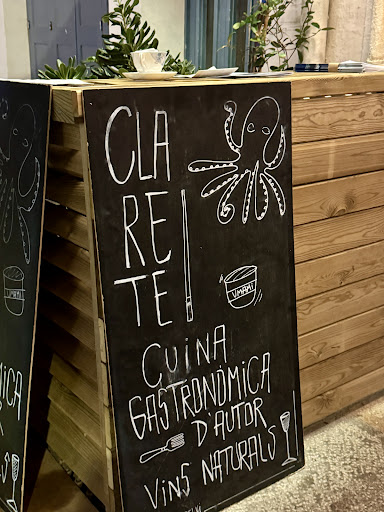 CLA
RE
TE
UMAMI
CUINA
GASTRONÓMICA
D'AUTOR
VINS NATURALS
UMAMI